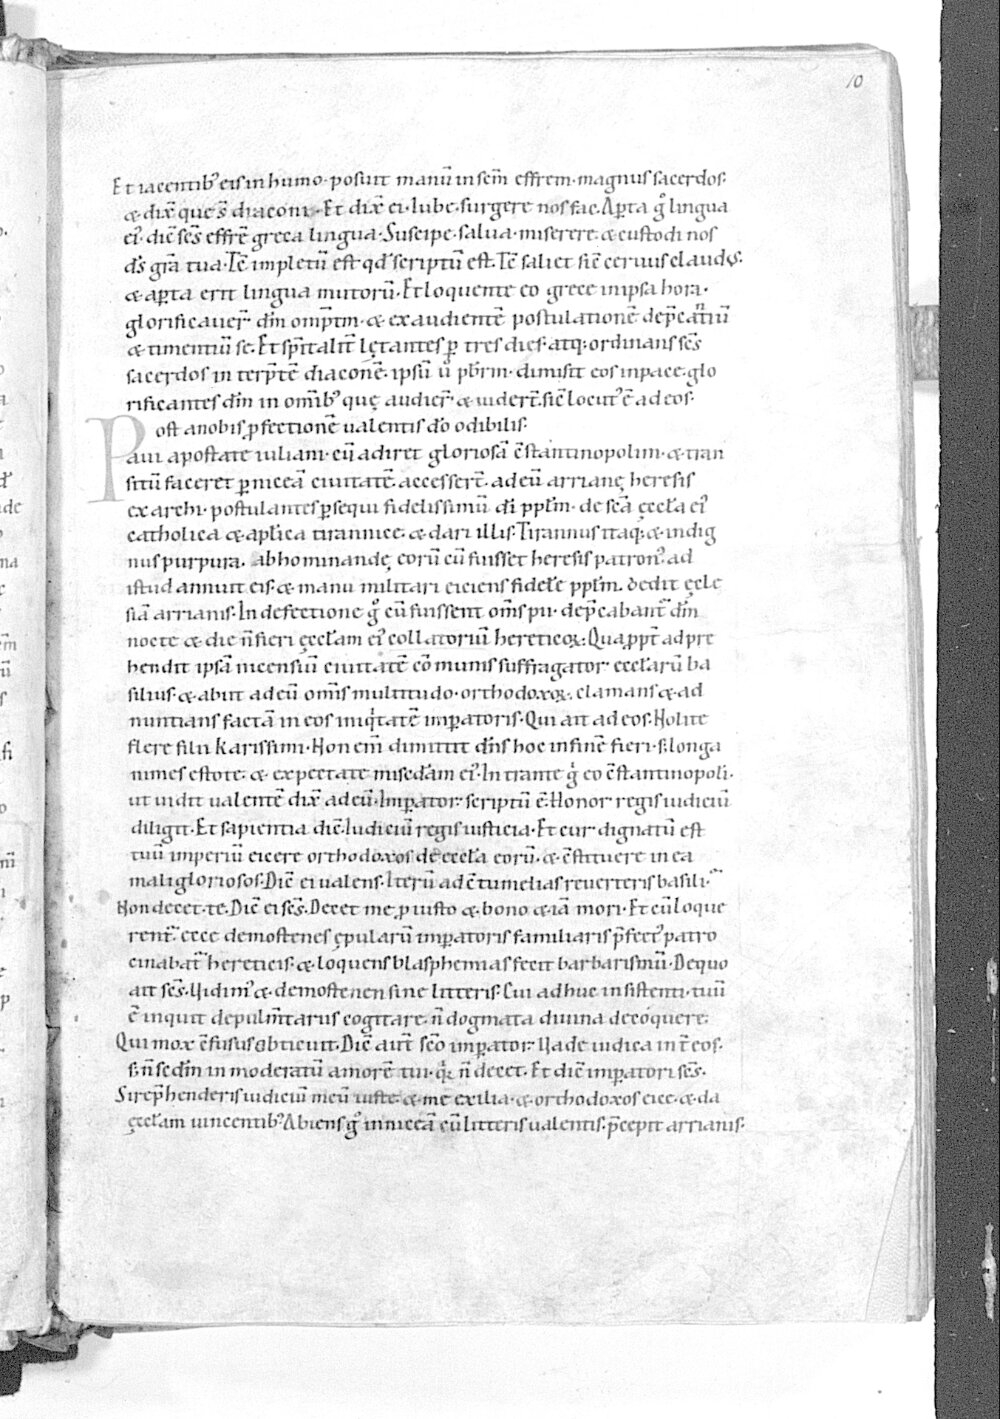 10
Et iacentib' eis in humo· posuit manū in sēm effrem· magnus sacerdos·
& dix̄ que s̄ diaconi·. Et dix̄ ei· Iube· surgere nos fac. Aꝑta ḡ lingua
ei'· diē sēs effrē greca lingua· Suscipe· salua· miserere· & custodi nos
d̄s grā tua· Tē impletū est qd̄ scriptū est. Tē saliet sic̄ ceruus claudꝰ·
& aꝑta erit lingua mutorū· Et loquente eo grece in ipsa hora·
glorificauer̄ dm̄ omp̄tm̄· & exaudientē postulationē dep̄cantiū
& timentiū se. Et sp̄italit̄ lętantes ꝑ tres dies· atq: ordinans sēs
sacerdos in terp̄tē diaconē· ipsū ū pb̄rm· dimisit eos in pace· glo
rificantes dm̄ in omīb' quę audier̄· & uider̄t· sic̄ locut' ē ad eos·
Post a nobis ꝓfectionē ualentis dō odibilis·
Paui apostate iuliani· cū adiret gloriosā c̄stantinopolim· & tran
sitū faceret ꝑ niceā ciuitatē· accesser̄t· ad eū arrianę heresis
exarchi· postulantes ꝑsequi fidelissimū dī pp̄lm· de scā ęccl̄a ei'
catholica & apl̄ica tirannice· & dari illis· Tirannus itaq: & indig
nus purpura· abhominandę eorū cū fuisset heresis patron' ad
istud annuit eis· & manu militari eiciens fidele pp̄lm· dedit ęcle
siā arrianis· In defectione ḡ cū fuissent om̄s pii· dep̄cabant̄ dm̄
nocte & die n̄ fieri ęccl̄am ei' collatoriū hereticoꝝ· Quaꝓpt̄ ad pre
hendit ipsā nicensiū ciuitatē cōmunis suffragator eccl̄arū ba
silius· & abiit ad eū om̄is multitudo· orthodoxoꝝ· clamans & ad
nuntians factā in eos iniq̇tatē imꝑatoris· Qui ait ad eos· Nolite
flere filii karissimi· Non eni̅ dimittit dn̄s hoc in finē fieri· s; longa
nimes estote· & expectate mis̄cdam ei'· Intrante ḡ eo c̄stantinopoli·
ut uidit ualentē dix̄ ad eū· Imꝑator· scriptū ē· Honor regis iudiciū
diligit· Et sapientia dic̄· Iudiciū regis iusticia· Et cur dignatū est
tuū imperiū eicere orthodoxos de eccl̄a eorū· & c̄stituere in ea
mali gloriosos· Dic̄ ei ualens· Iterū ad c̄tumelias reuerteris basili·
Non decet· te· Dic̄ ei sēs· Decet me ꝓ iusto & bono & iā mori· Et cū loque
rent̄ ecce demostenes ępularū imꝑatoris familiaris p̄fect' patro
cinabat̄ hereticis· & loquens blasphemias fecit barbarismū· De quo
ait sēs· Uidim' & demostenen sine litteris· Cui adhuc insistenti· tuū
ē inquit de pulm̄tarius cogitare· n̄ dogmata diuina decōquere·
Qui mox c̄fusus obticuit· Dic̄ aut̄ scō imꝑator· Uade iudica int̄ eos·
s; n̄ scd̄m in moderatū amorē tui· q̇ n̄ decet· Et dic̄ imꝑatori sēs·
Si rep̄henderis iudiciū meū iuste· & me exilia· & orthodoxos eice· & da
ęccl̄am uincentib' Abiens ḡ in niceā cū litteris ualentis· p̄cepit arrianis·